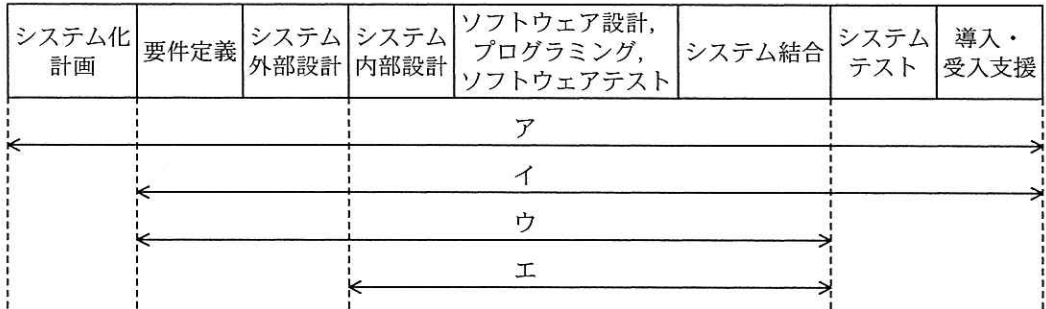 システム化
計画
要件定義
システム
外部設計
システム
内部設計
ソフトウェア設計,
プログラミング,
ソフトウェアテスト
システム結合
システム
テスト
導入・
受入支援
ア
イ
ウ
エ